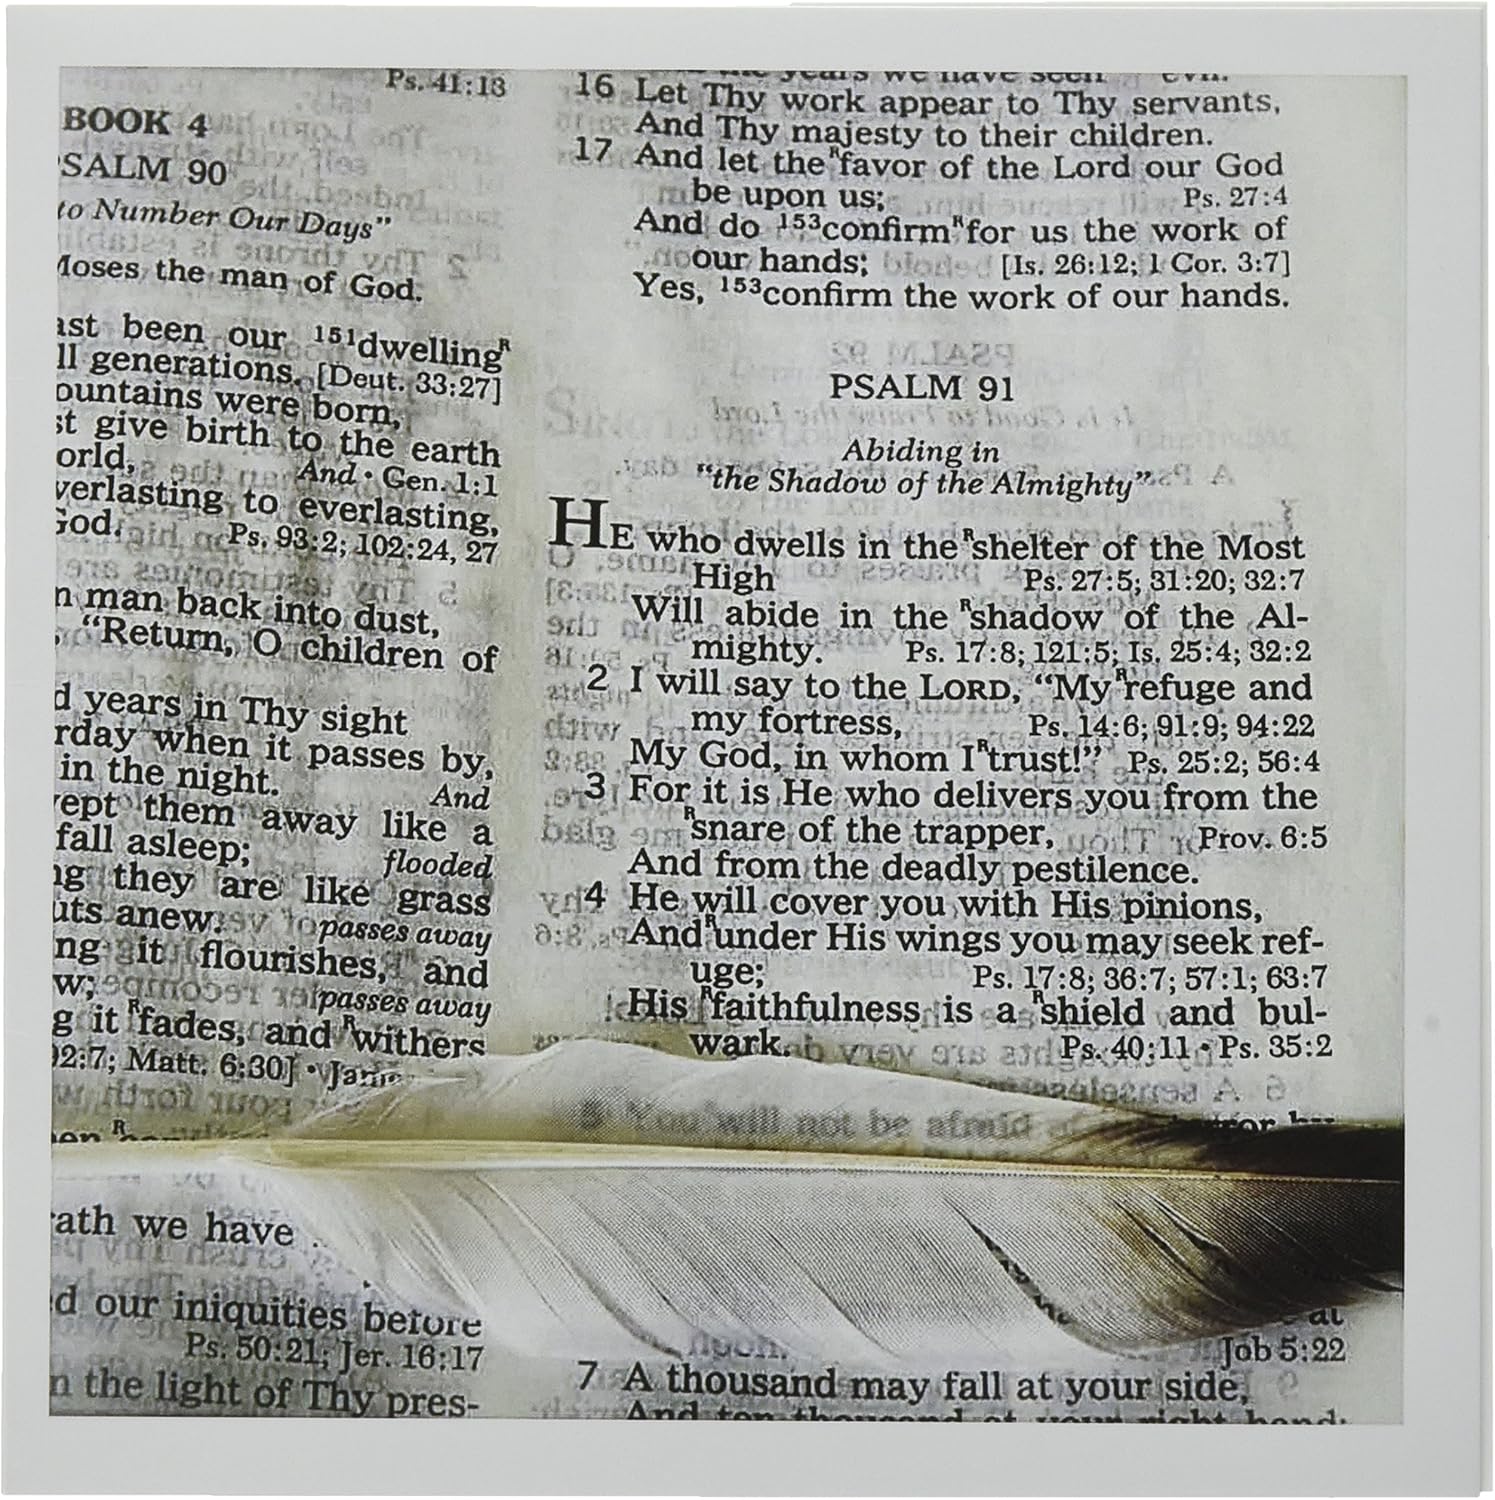 Ps. 41:13
BOOK 4
PSALM 90
to Number Our Days”
Moses the man of God.
ast been our 151dwellingR
ll generations. [Deut. 33:27]
ountains were born,
st give birth to the earth
orld, And • Gen. 1:1
verlasting to everlasting,
God. Ps. 93:2; 102:24, 27
n man back into dust,
“Return, O children of
d years in Thy sight
rday when it passes by,
in the night.
And
ept them away like a
fall asleep; flooded
ng they are like grass
uts anew. passes away
ng it flourishes, and
w; passes away
g it Rfades, and Rwithers
92:7; Matt. 6:30] •
ath we have
d our iniquities before
Ps. 50:21; Jer. 16:17
n the light of Thy pres-
years we have seen evil.
16 Let Thy work appear to Thy servants,
And Thy majesty to their children.
17 And let the Rfavor of the Lord our God
be upon us; Ps. 27:4
And do 153confirm Rfor us the work of
our hands; [Is. 26:12; 1 Cor. 3:7]
Yes, 153confirm the work of our hands.
PSALM 91
Abiding in
“the Shadow of the Almighty”
HE who dwells in the Rshelter of the Most
High Ps. 27:5; 31:20; 32:7
Will abide in the Rshadow of the Al-
mighty. Ps. 17:8; 121:5; Is. 25:4; 32:2
2 I will say to the LORD, “My Rrefuge and
my fortress, Ps. 14:6; 91:9; 94:22
My God, in whom I Rtrust!” Ps. 25:2; 56:4
3 For it is He who delivers you from the
Rsnare of the trapper, Prov. 6:5
And from the deadly pestilence.
4 He will cover you with His pinions,
And Runder His wings you may seek ref-
uge; Ps. 17:8; 36:7; 57:1; 63:7
His Rfaithfulness is a Rshield and bul-
wark. Ps. 40:11 • Ps. 35:2
You will not be afraid
Job 5:22
7 A thousand may fall at your side,
And ten thousand at your right hand;